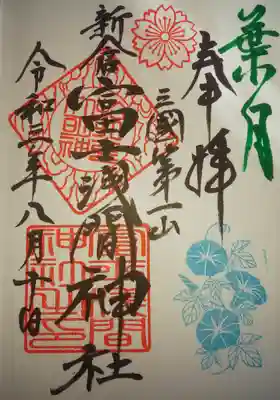 葉月
奉拝
三國第一山
新倉富士浅間神社
令和三年八月十日